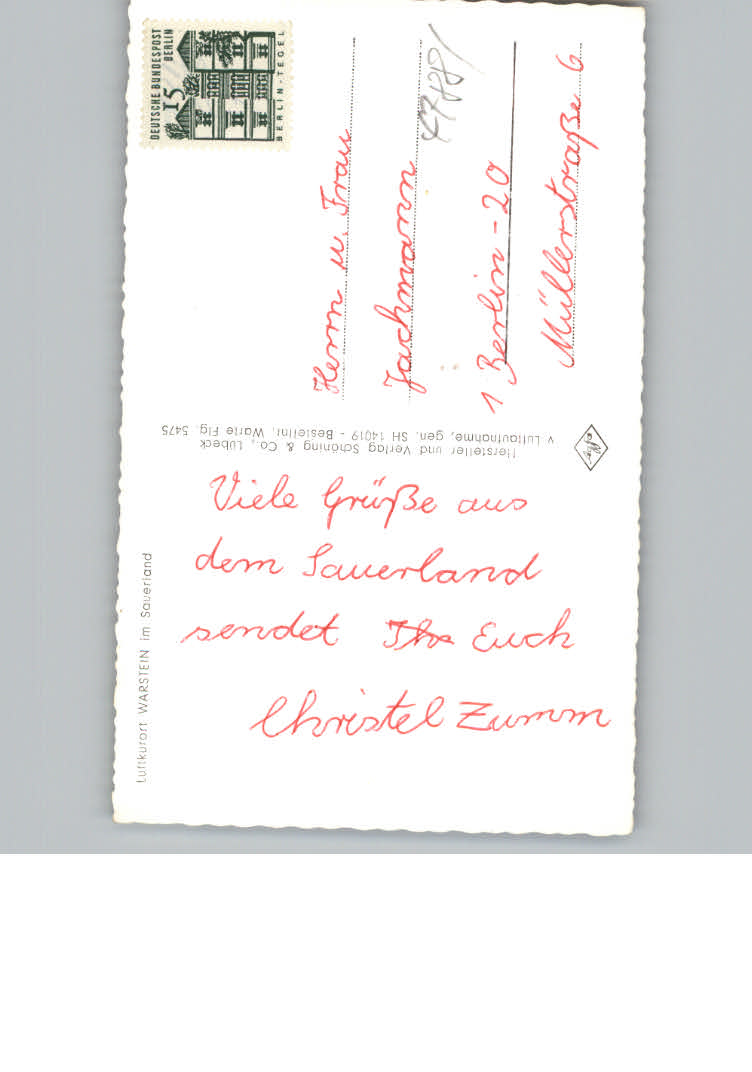 DEUTSCHE BUNDESPOST
BERLIN
15
BERLIN-TEGEL
Herrn u. Frau
Jachmann
1 Berlin-20
Müllerstraße 6
Hersteller und Verlag Schöning & Co., Lübeck
v Luftaufnahme, gen. SH 14019 - Bestellnr. Warte Flg. 5475
Luftkurort WARSTEIN im Sauerland
Viele Grüße aus
dem Sauerland
sendet Ihr Euch
Christel Zumm